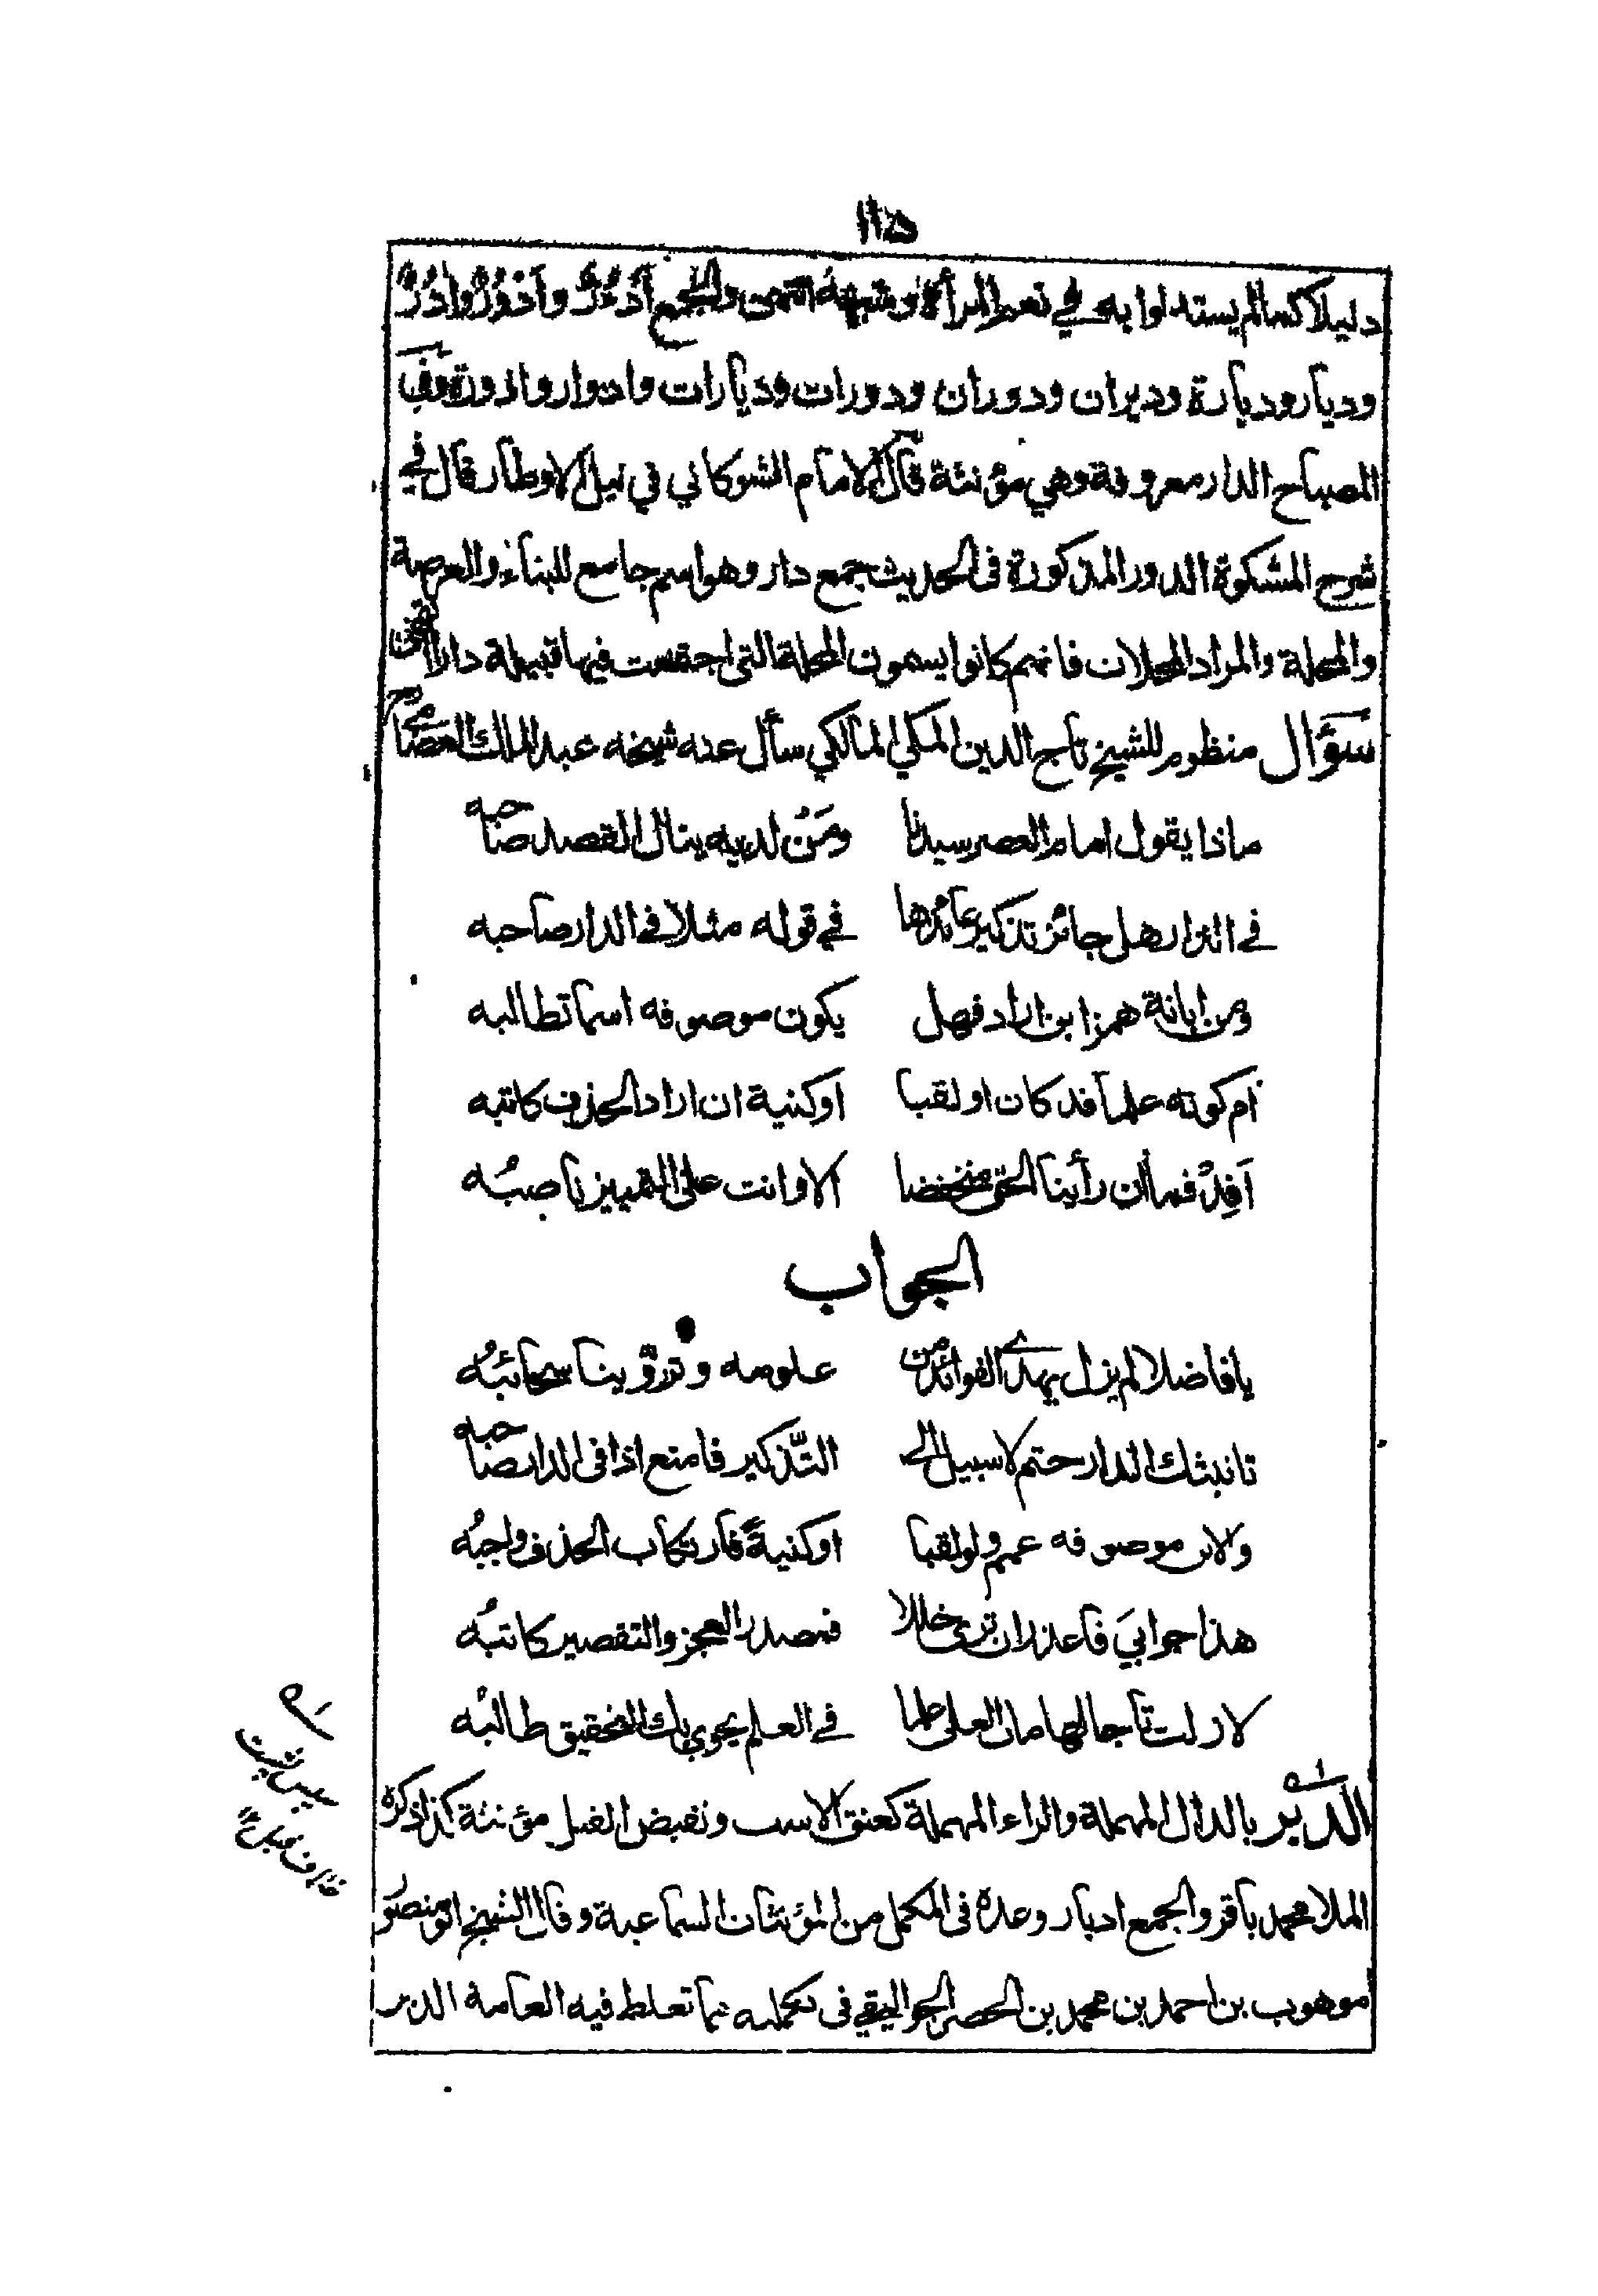 ١١٥
دليلا كما لم يستدلوا به في نعم المرأة وشبهه انتهى والجمع أَدْؤُرٌ وأَدْوُرٌ وآدُرٌ
وديار وديارة وديران ودوران ودورات وديارات وادوار وادورة وفي
المصباح الدار معروفة وهي مؤنثة قال الامام الشوكاني في نيل الاوطار قال في
شرح المشكوة الدور المذكورة في الحديث جمع دار وهو اسم جامع للبناء والعرصة
والمحلة والمراد المحلات فانهم كانوا يسمون المحلة التي اجتمعت فيها قبيلة دارا انتهى
سؤال منظوم للشيخ تاج الدين المكي المالكي سأل عنه شيخه عبد الملك العصامي
ماذا يقول امام العصر سيدنا ومَنْ لديه ينال القصد صاحبه
في الدار هل جائز تذكير عائدها في قوله مثلا في الدار صاحبه
ومن ابانة همز ابن اراد فهل يكون موصوفه اسما تطالبه
ام كونه علما قد كان او لقبا او كنية ان اراد الحذف كاتبه
اَفِدْ فما ان رأينا الحق منخفضا الا وانت على التمييز ناصبُه
الجواب
يا فاضلا لم يزل يهدي الفوائد من علومه وتروّينا سحائبُه
تانيثك الدار حتم لا سبيل الى التّذكير فامنع اذا في الدار صاحبه
ولابن موصوفه عمم ولو لقبا او كنيةً فارتكاب الحذف واجبُه
هذا جوابيَ فاعذر ان ترى خللا فمصدر العجز والتقصير كاتبُه
لا زلت تاجا لهامات العلى علما في العلم يحوي بك التحقيق طالبُه
الدبر بالدال المهملة والراء المهملة كعنق الاست ونقيض القبل مؤنثة كذا ذكره
الملا محمد باقر والجمع ادبار وعده في المكمل من المؤنثات السماعية وقال الشيخ ابو منصور
موهوب بن احمد بن محمد بن الخضر الجواليقي في تكملة ما تغلط فيه العامة الدبر